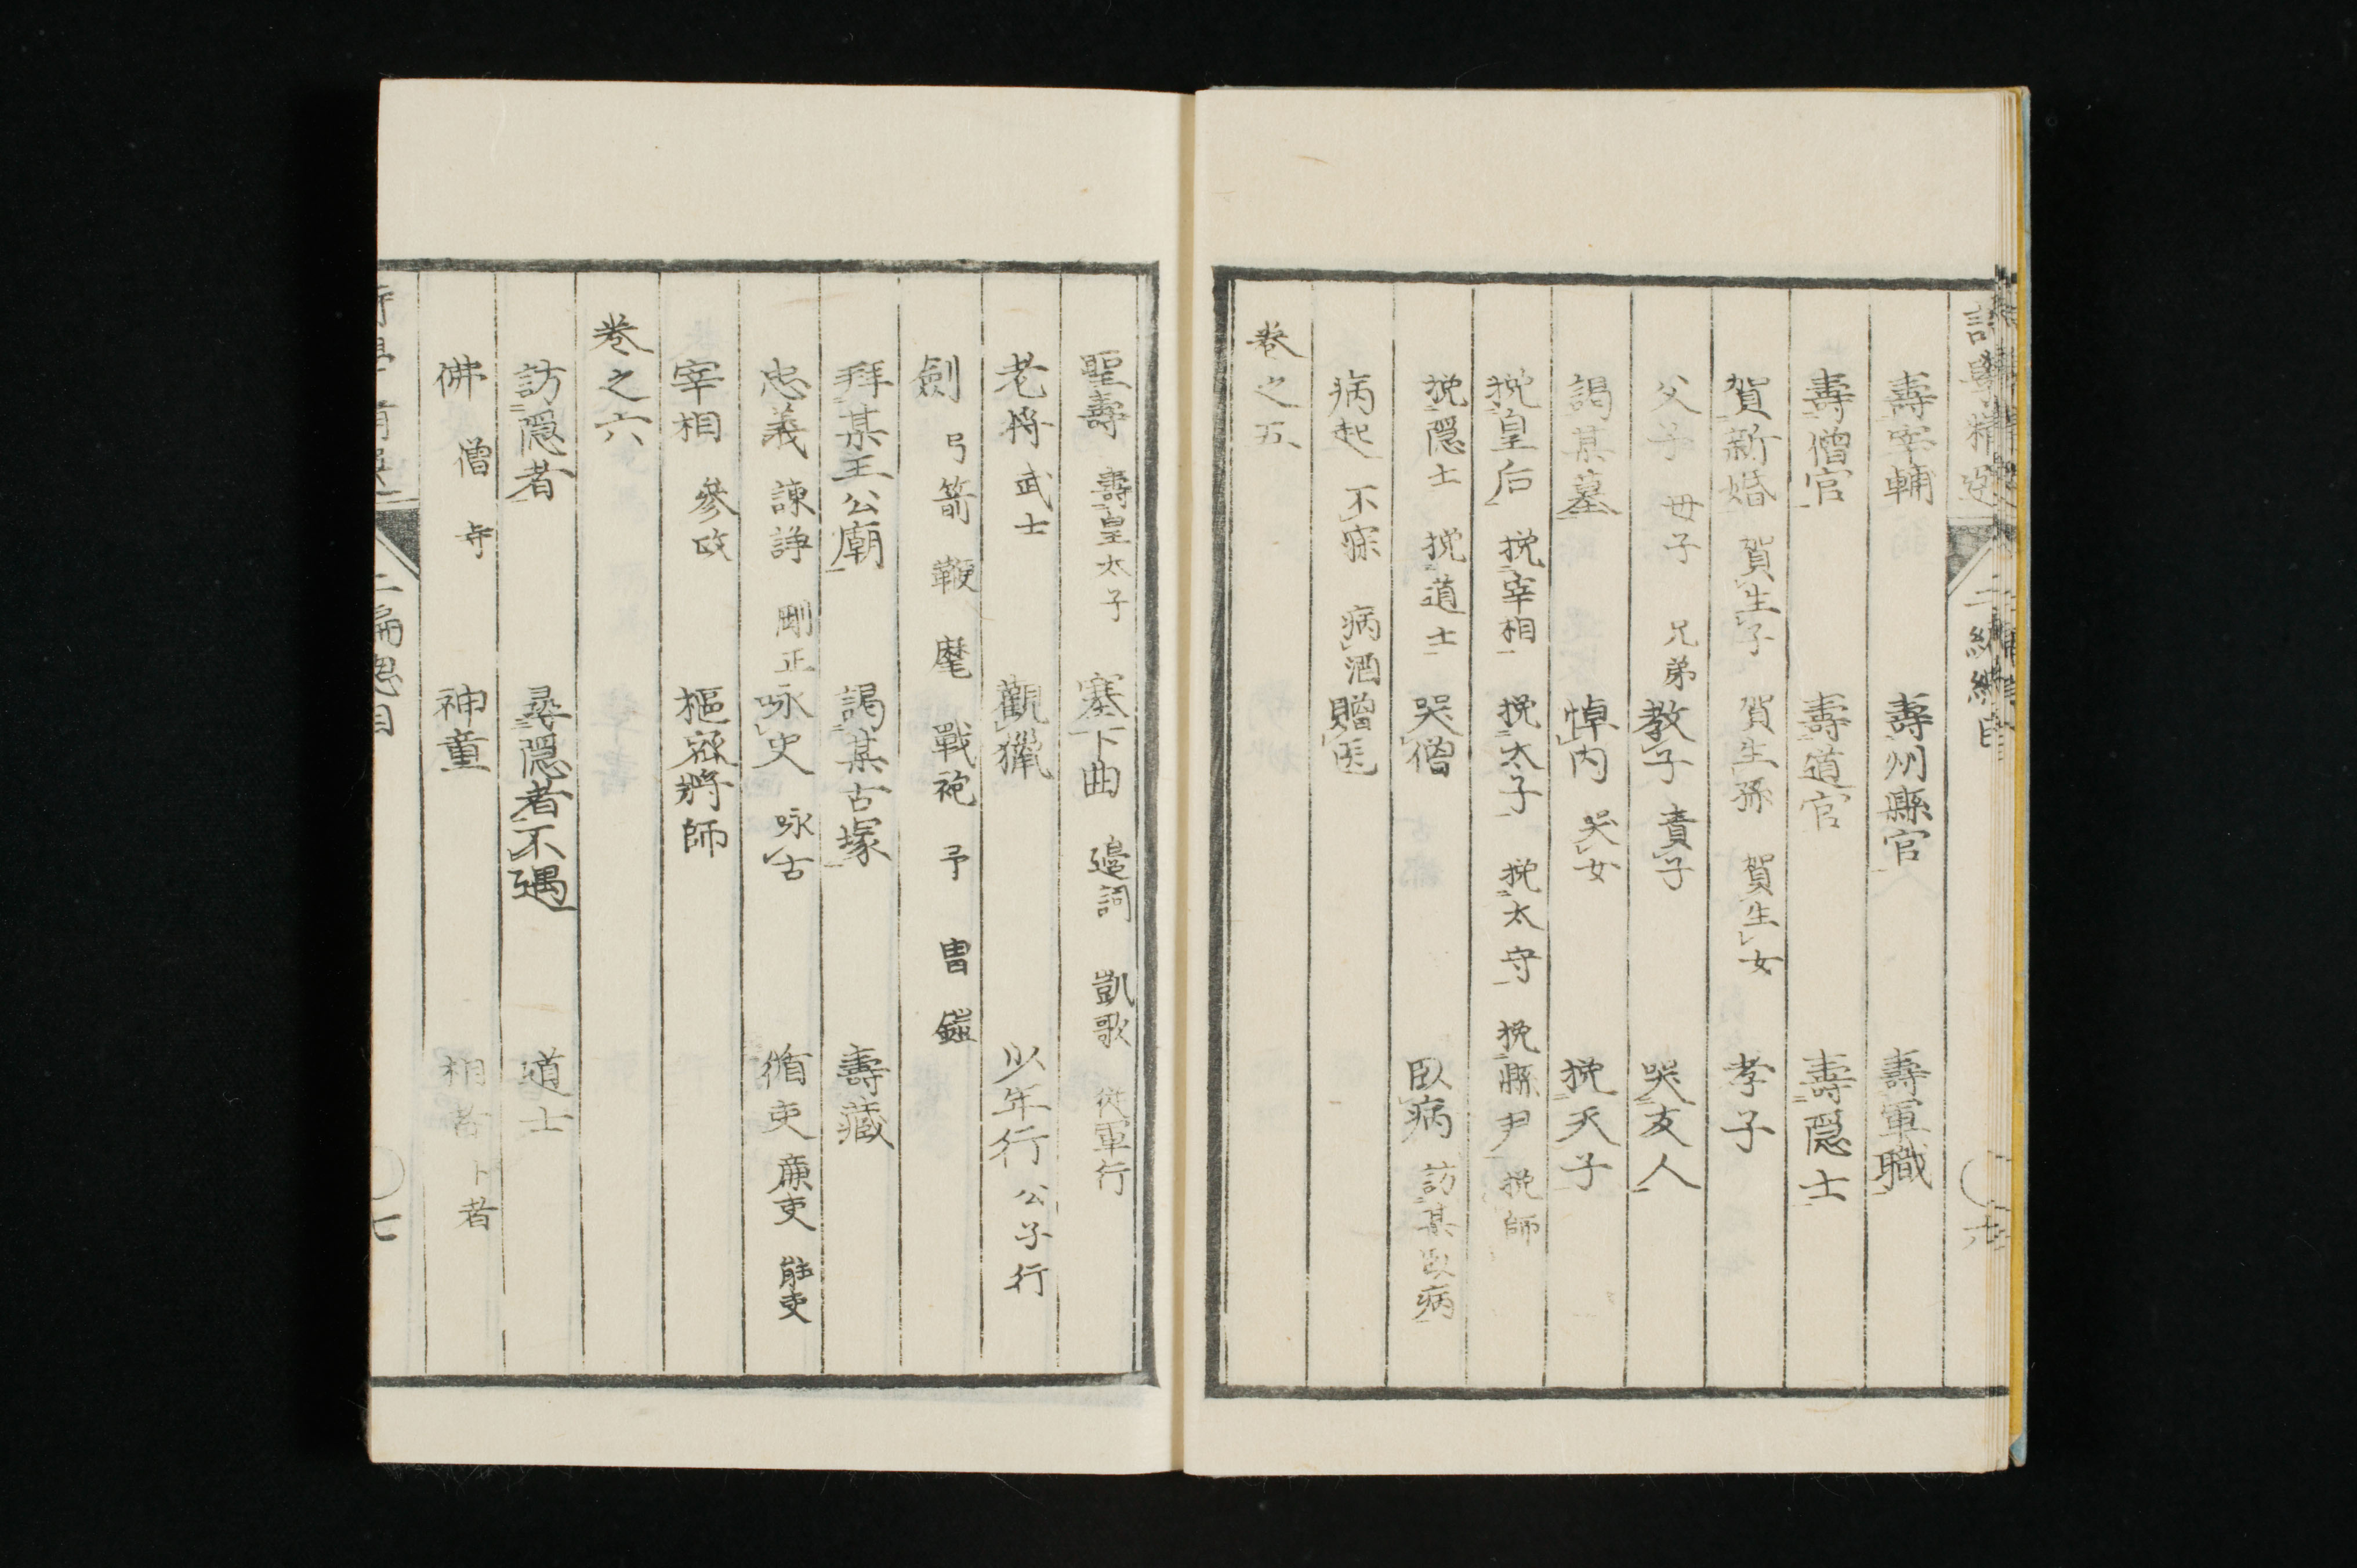 壽宰輔 壽州縣官 壽軍職
壽僧官 壽道官 壽隱士
賀新婚 賀生子 賀生孫 賀生女 孝子
父子 母子 兄弟 教子 責子 哭友人
謁某墓 悼内 哭女 挽天子
挽皇后 挽宰相 挽太子 挽太守 挽縣尹 挽師
挽隱士 挽道士 哭僧 臥病 訪某臥病
病起 不寐 病酒 贈医
卷之五
聖壽 壽皇太子 塞下曲 邊詞 凱歌 從軍行
老将 武士 觀獵 少年行 公子行
劍 弓箭 鞭 麾 戰袍 予 冑 鎧
拜某王公廟 謁某古塚 壽藏
忠義 諫諍 剛正 咏史 咏古 循吏 廉吏 能吏
宰相 參政 樞密 將師
卷之六
訪隱者 尋隱者不遇 道士
佛 僧 寺 神童 相者 卜者
二編 目 七